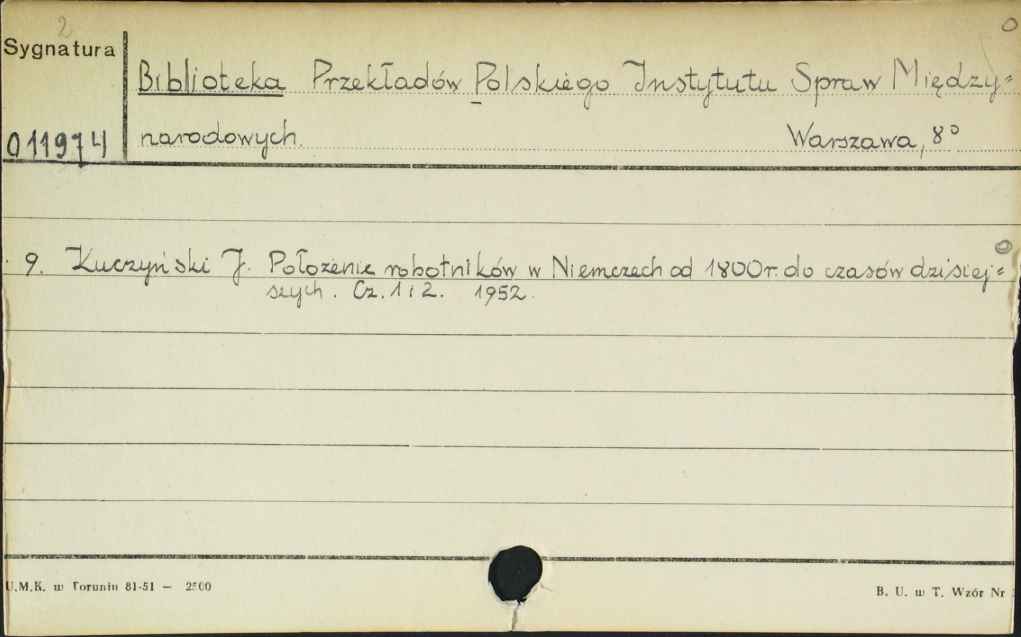 2
Sygnatura
Biblioteka Przekładów Polskiego Instytutu Spraw Między=
011974
narodowych. Warszawa, 8°
9. Kuczyński J. Położenie robotników w Niemczech od 1800 r. do czasów dzisiej=
szych. Cz. 1 i 2. 1952.
U.M.K. w Toruniu 81-51 — 2500
B. U. w T. Wzór Nr